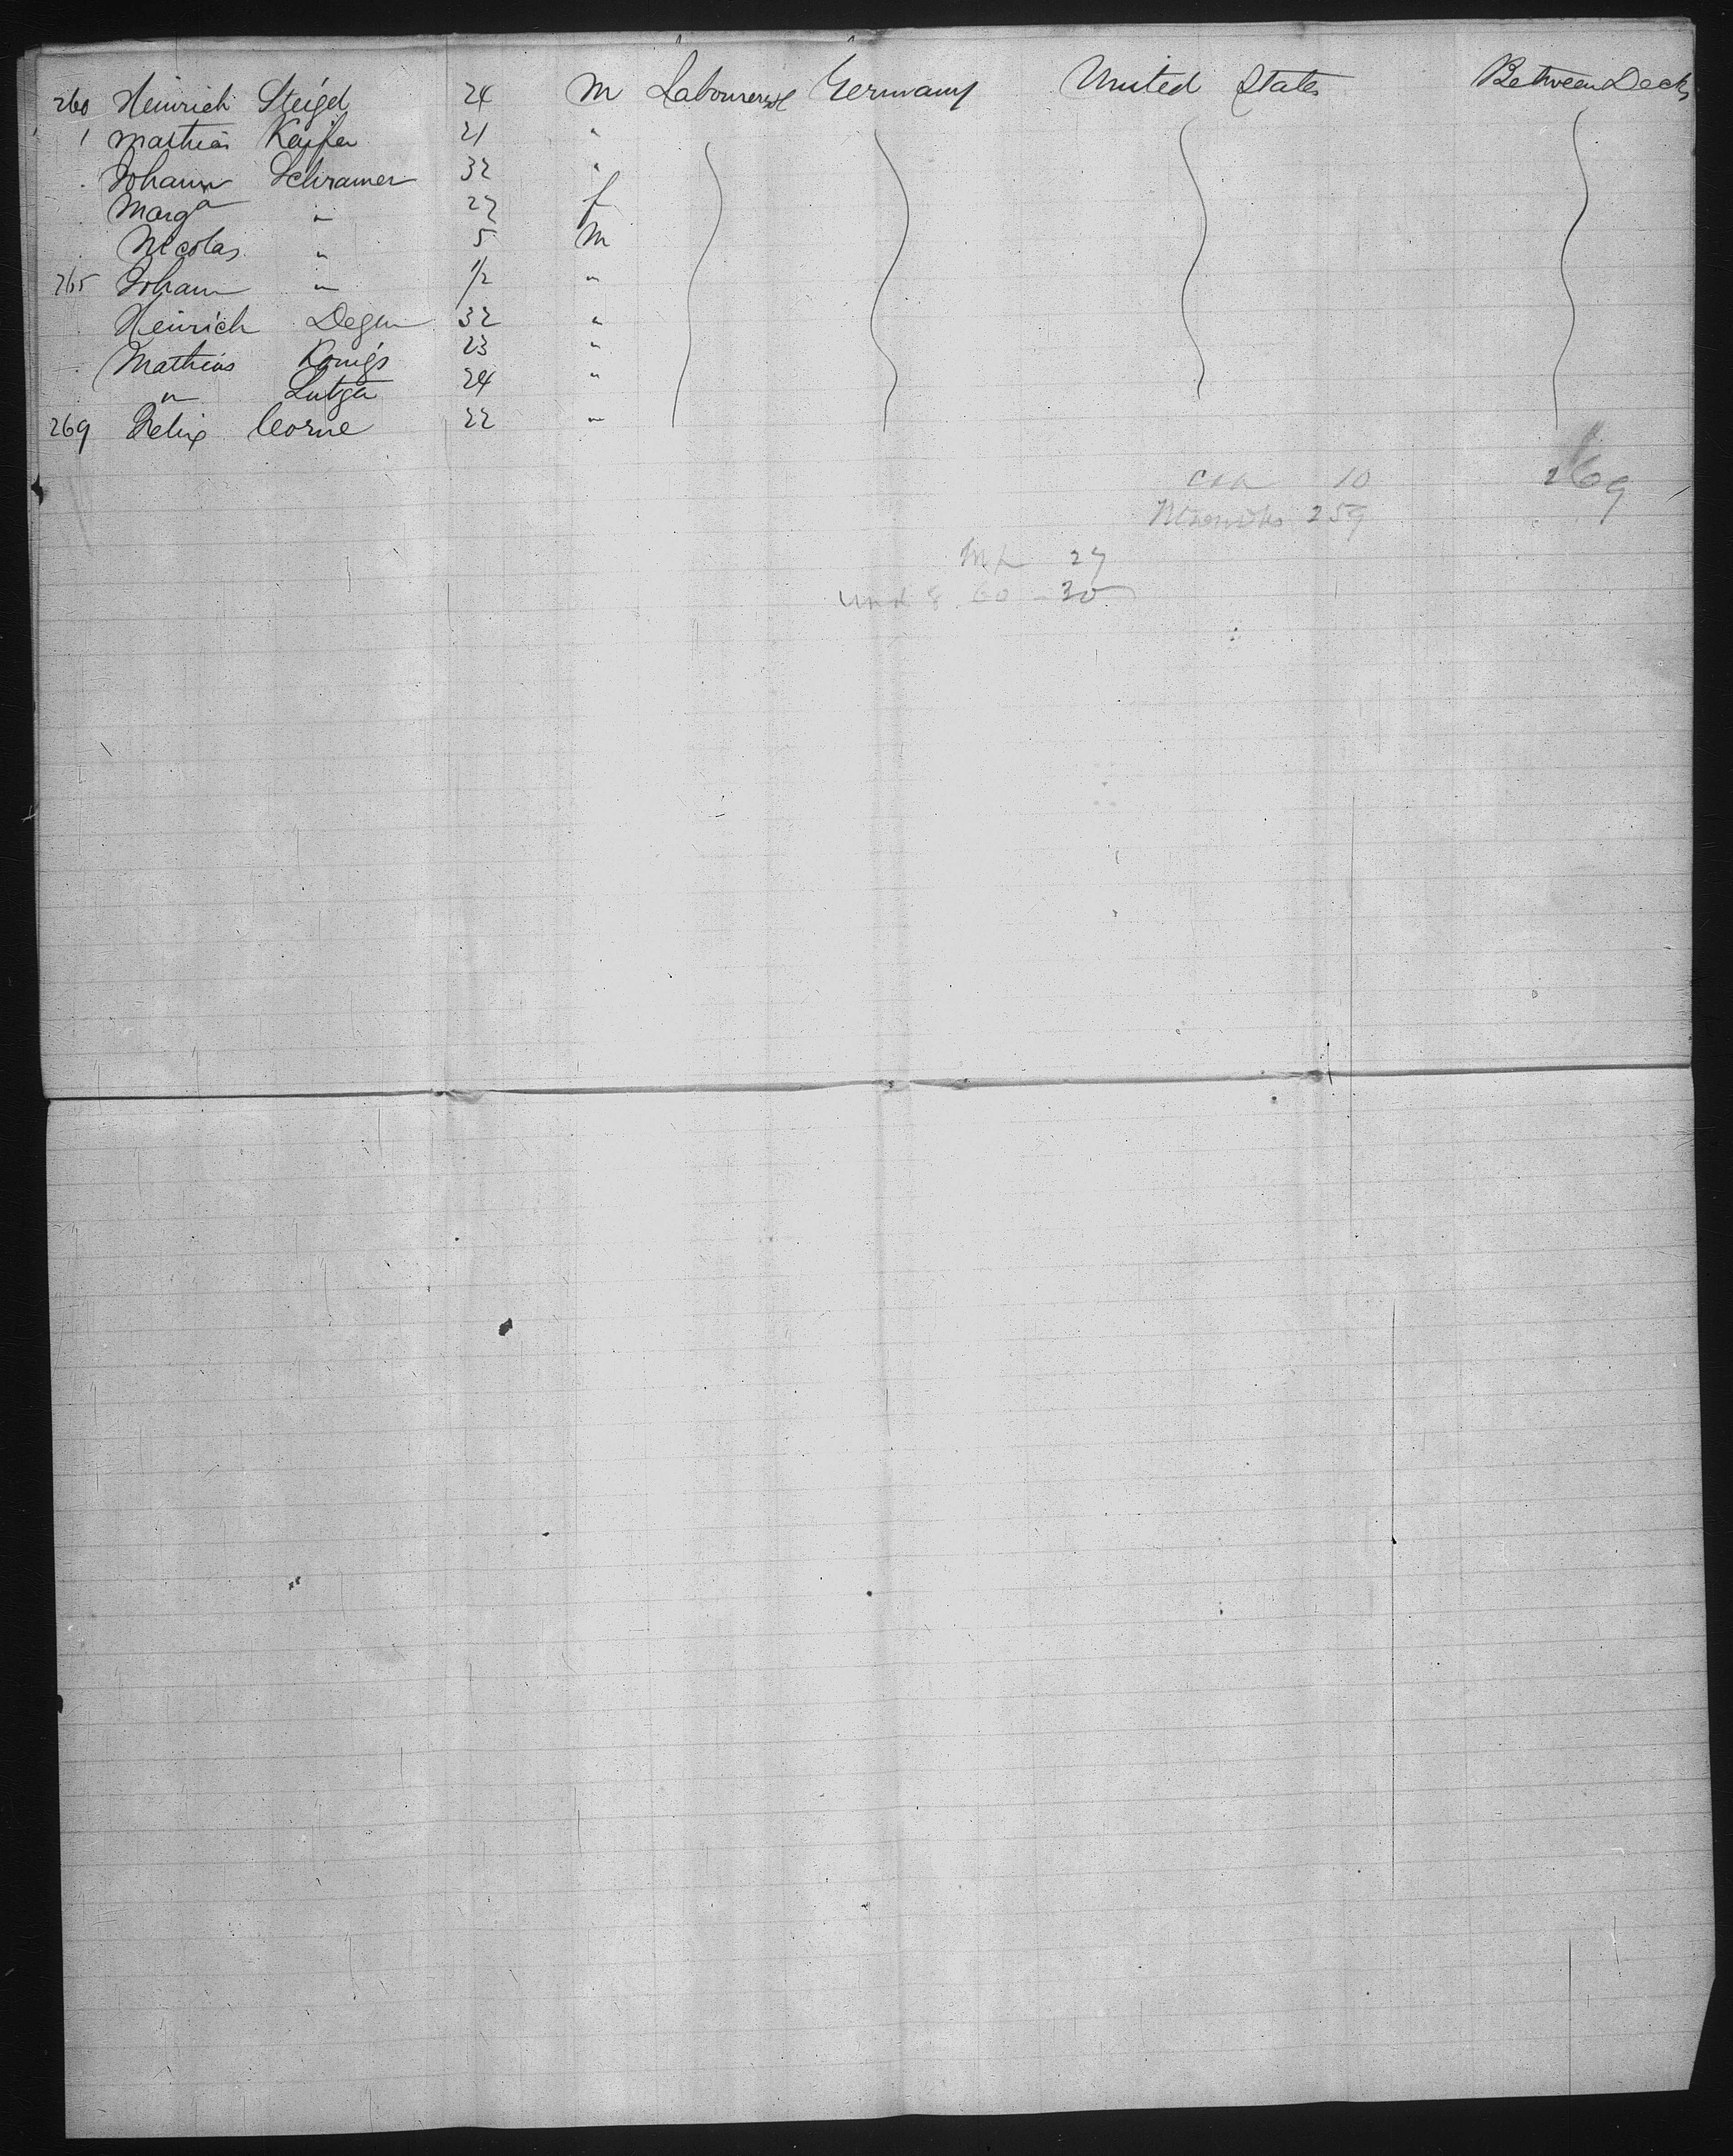 260 Heinrich Steigel 24 M Labourers Germany United States Between Decks
1 Mathias Kaifer 21 "
. Johann Schramer 32 "
Marga " 27 f
Nicolas " 5 M
265 Johann " 1/2 "
Heinrich Degen 32 "
Mathias Konigs 23 "
" 24 "
269 Felix Corne 22 "
10 269
259
27
30